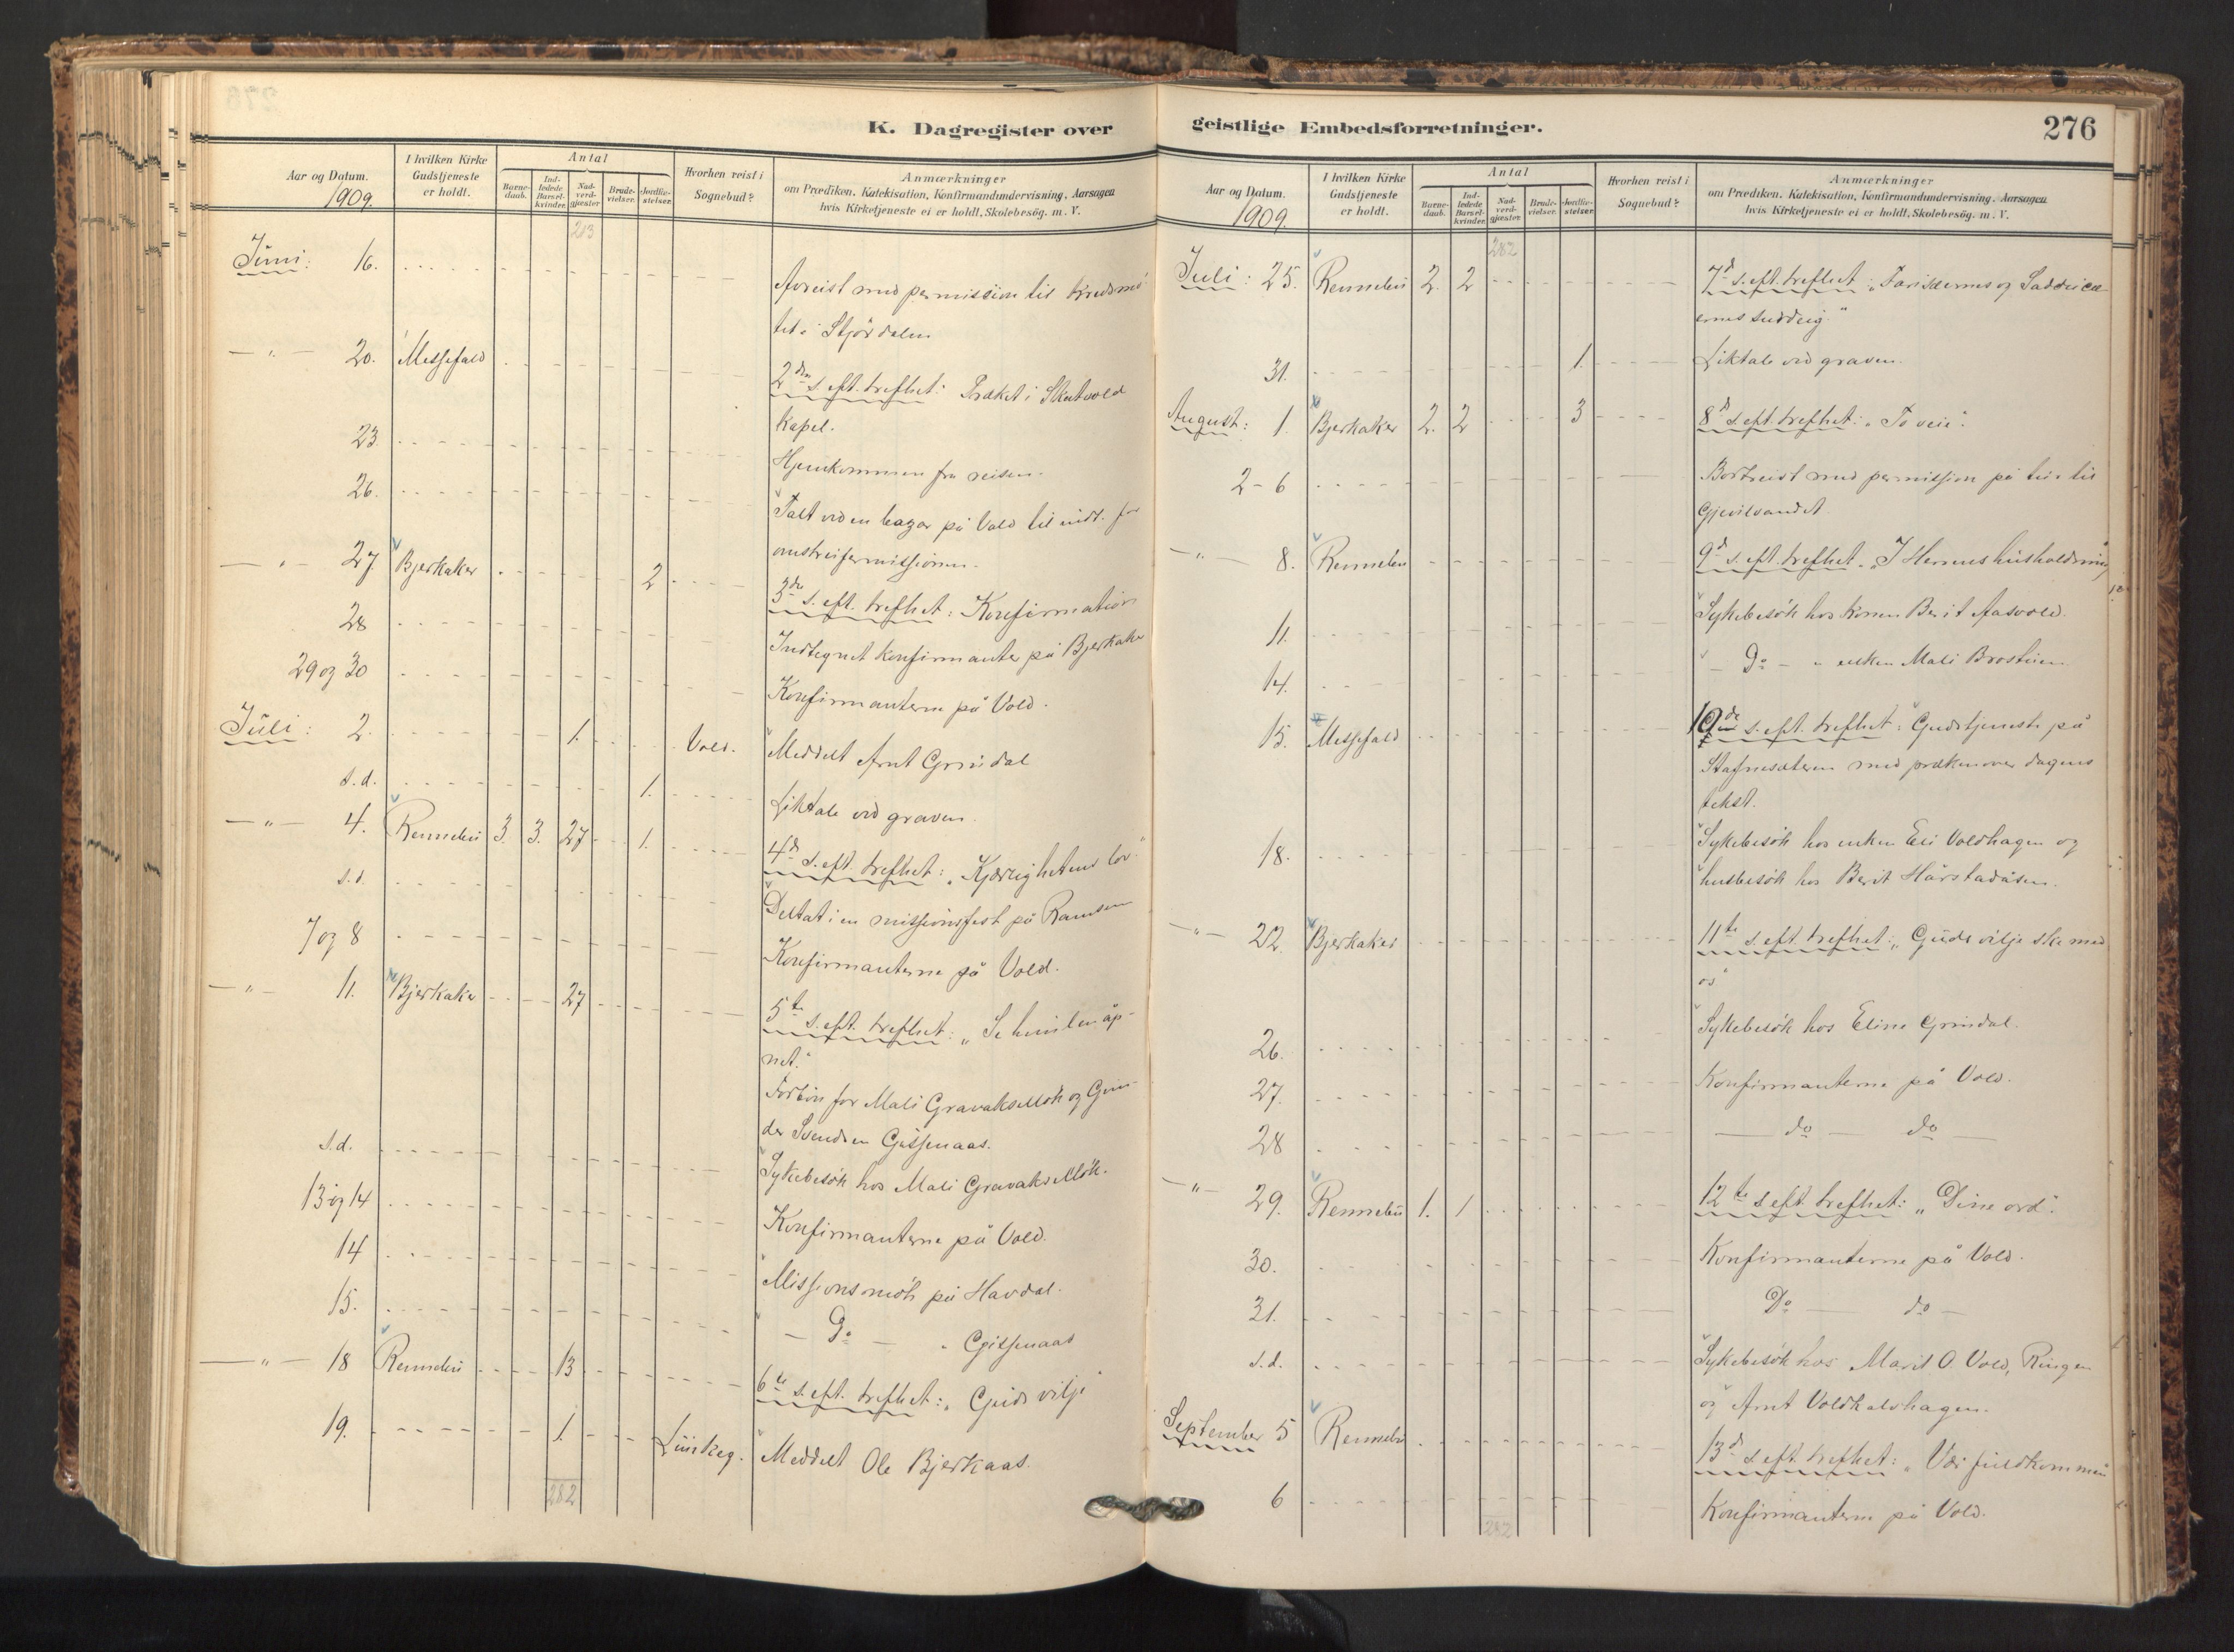 K. Dagregister over
Aar og Datum.
1909.
I hvilken Kirke
Gudstjeneste
er holdt.
Antal
Barne-
daab.
Ind-
ledede
Barsel-
kvinder.
Nad-
verd-
gjæster
Brude-
vielser.
Jordfæ-
stelser.
Hvorhen reist i
Sognebud?
Anmærkninger
om Prædiken, Katekisation, Konfirmandundervisning, Aarsagen
hvis Kirketjeneste ei er holdt, Skolebesøg. m. V.
213
Juni: 16. Avreist med permission til kredsmö-
tet i Stjördalen
— " — 20. Messefald 2den s. eft. trefhet: Præket i Skatvold
kapel.
23 Hjemkommen fra reisen.
26. Talt ved en bazar på Vold til indt. for
omstreifermissionen.
— " — 27 Bjerkaker 2 3die s. eft. trefhet: Konfirmation
28 Indtegnet konfirmanter på Bjerkaker
29 og 30 Konfirmanterne på Vold.
Juli: 2. 1. Vold. Meddelt Arnt Grindal
s.d. 1. Liktale ved graven.
— " — 4. Rennebu 3. 3. 27 1. 4de s. eft. trefhet: "Kjærlighetens lov."
s.d. Deltat i en missionsfest på Ramsem
7 og 8 Konfirmanterne på Vold.
— " — 11. Bjerkaker 27 5te s. eft. trefhet: "Se himlen åp-
net."
Forbön for Mali Gravaksmoh og Gun-
der Svendsen Gissenaas.
s.d. Sykebesök hos Mali Gravaksmoh.
13 og 14 Konfirmanterne på Vold.
14 Missionsmöte på Havdal.
15. — Do — " Gjissenaas
— " — 18 Rennebu 13 6te s. eft. trefhet: "Guds vilje"
19. 1. Meddelt Ole Bjerkaas.
282
geistlige Embedsforretninger.
276
Aar og Datum.
1909.
I hvilken Kirke
Gudstjeneste
er holdt.
Antal
Barne-
daab.
Ind-
ledede
Barsel-
kvinder.
Nad-
verd-
gjæster
Brude-
vielser.
Jordfæ-
stelser.
Hvorhen reist i
Sognebud?
Anmærkninger
om Prædiken, Katekisation, Konfirmandundervisning, Aarsagen
hvis Kirketjeneste ei er holdt, Skolebesøg. m. V.
282
Juli: 25. Rennebu 2. 2 7d s. eft. trefhet: "Farisæernes og Sadducæ-
ernes surdeig."
31. 1. Liktale ved graven.
August: 1. Bjerkaker 2. 2 3 8d s. eft. trefhet: "To veie".
2-6 Bortreist med permission på tur til
Gjevilvandet.
— " — 8. Rennebu 9d s. eft. trefhet. "I Herrens husholdning"
11. Sykebesök hos konen Berit Aasvold.
14. — Do — " enken Mali
15. Messefald 10de s. eft. trefhet: Gudstjeneste på
Stafnesæteren med præken over dagens
tekst.
18. Sykebesök hos enken Eli Voldhagen og
husbesök hos Berit Hårstadåsen.
— " — 22. Bjerkaker 11te s. eft. trefhet: "Guds vilje ske med
os"
26. Sykebesök hos Eline Grindal.
27. Konfirmanterne på Vold.
28 — do — do —
— " — 29. Rennebu 1. 1 12te s. eft. trefhet: "Dine ord".
30. Konfirmanterne på Vold.
31. Do — do —
s.d. Sykebesök hos Marit O. Vold, Ringen
og Arnt Voldkalshagen.
September 5 Rennebu 13d s. eft. trefhet: "Vær fuldkommen
6 Konfirmanterne på Vold.
282